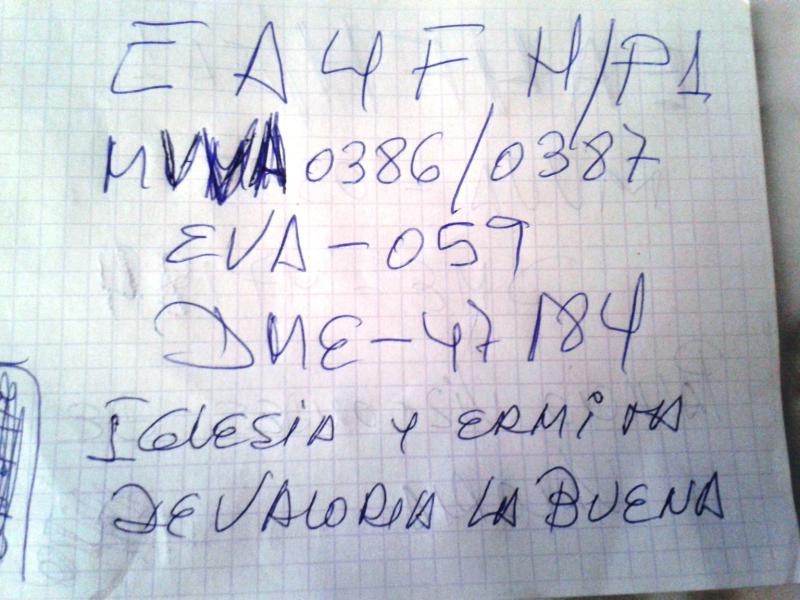 EA4FH/P1
MVVA 0386/0387
EVA-059
DME-47184
IGLESIA Y ERMIMA
DE VALORIA LA BUENA